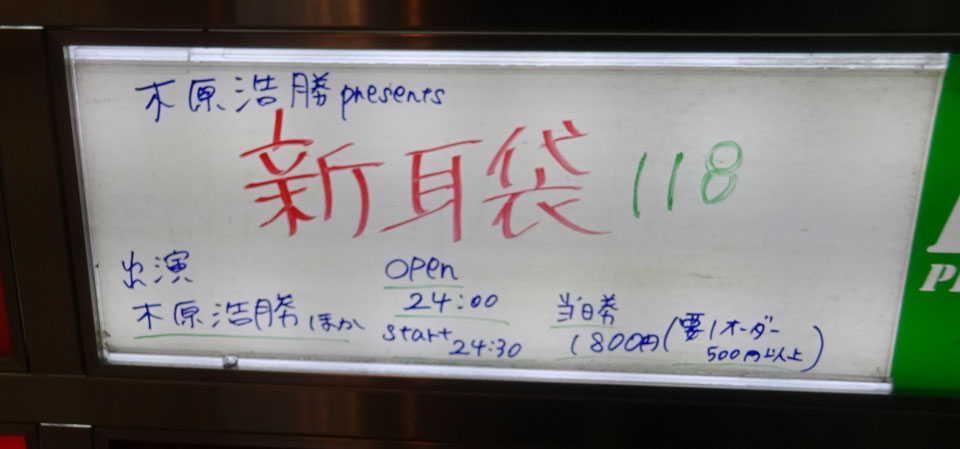 木原浩勝presents
新耳袋118
出演
木原浩勝ほか
OPEN
24:00
start
24:30
当日券
1800円(要1オーダー
500円以上)